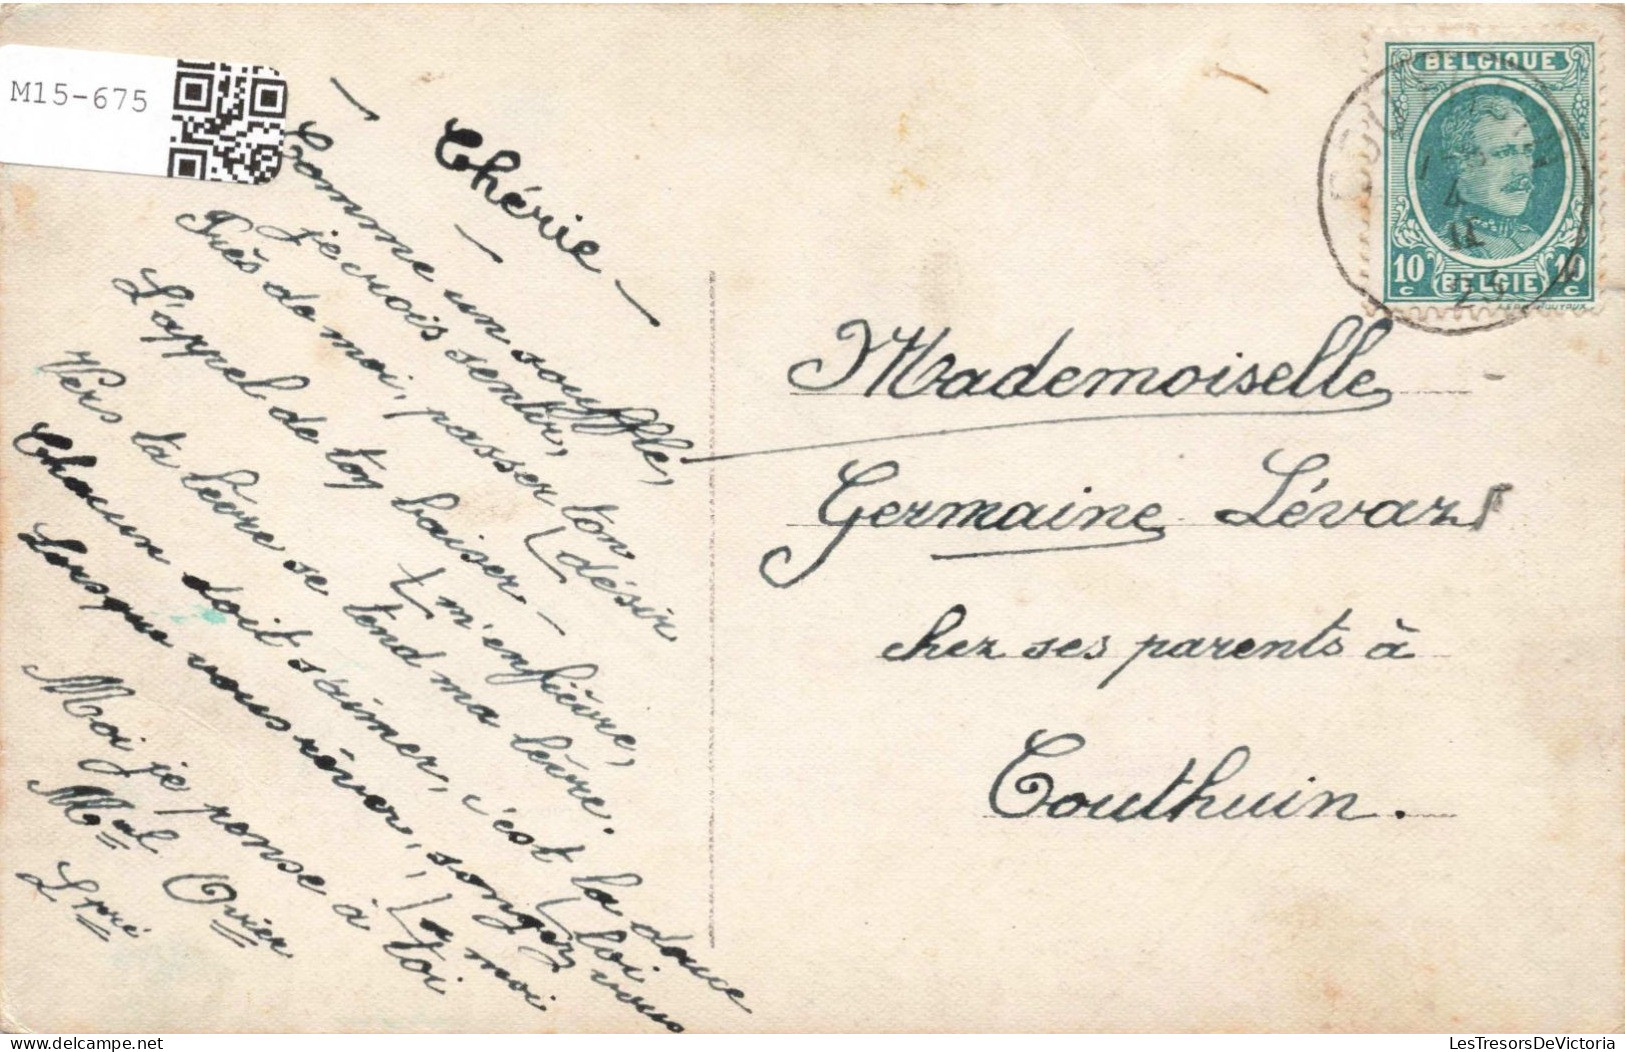 M15-675
— Chérie —
Comme un souffle,
je crois sentir,
Près de moi, passer ton
désir
L'appel de ton baiser —
m'enfièvre,
Vers ta lèvre se tend ma lèvre.
Chacun doit s'aimer, c'est la douce
loi
Lorsque vous rêver, songez vous
a moi
Moi je pense à toi
BELGIQUE
10 c BELGIE 10 c
Mademoiselle
Germaine
chez ses parents à
Couthuin.
LesTresorsDeVictoria